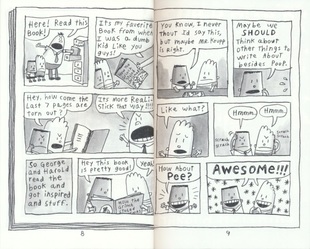 Here! Read this
Book!
It's my favorite
Book from when
I was a dumb
kid like you
guys!
You Know, I never
thought I'd say this,
but maybe Mr. Krupp
is right.
Maybe we
SHOULD
think about
other things to
write About
besides Poop.
Hey, how come the
last 7 pages are
torn out?
It's more Reali-
stick that way!!!
Like what?
Hmmm.
Hmmm.
So George
and Harold
read the
book and
got inspired
and stuff.
Hey this book
is pretty good!
Yeah
How About
Pee?
AWESOME!!!
8
9